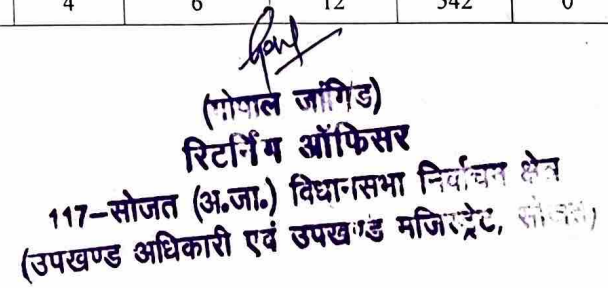 4 6 12 342 0
(गोपाल जांगिड)
रिटर्निंग ऑफिसर
117-सोजत (अ.जा.) विधानसभा निर्वाचन क्षेत्र
(उपखण्ड अधिकारी एवं उपखण्ड मजिस्ट्रेट, सोजत)